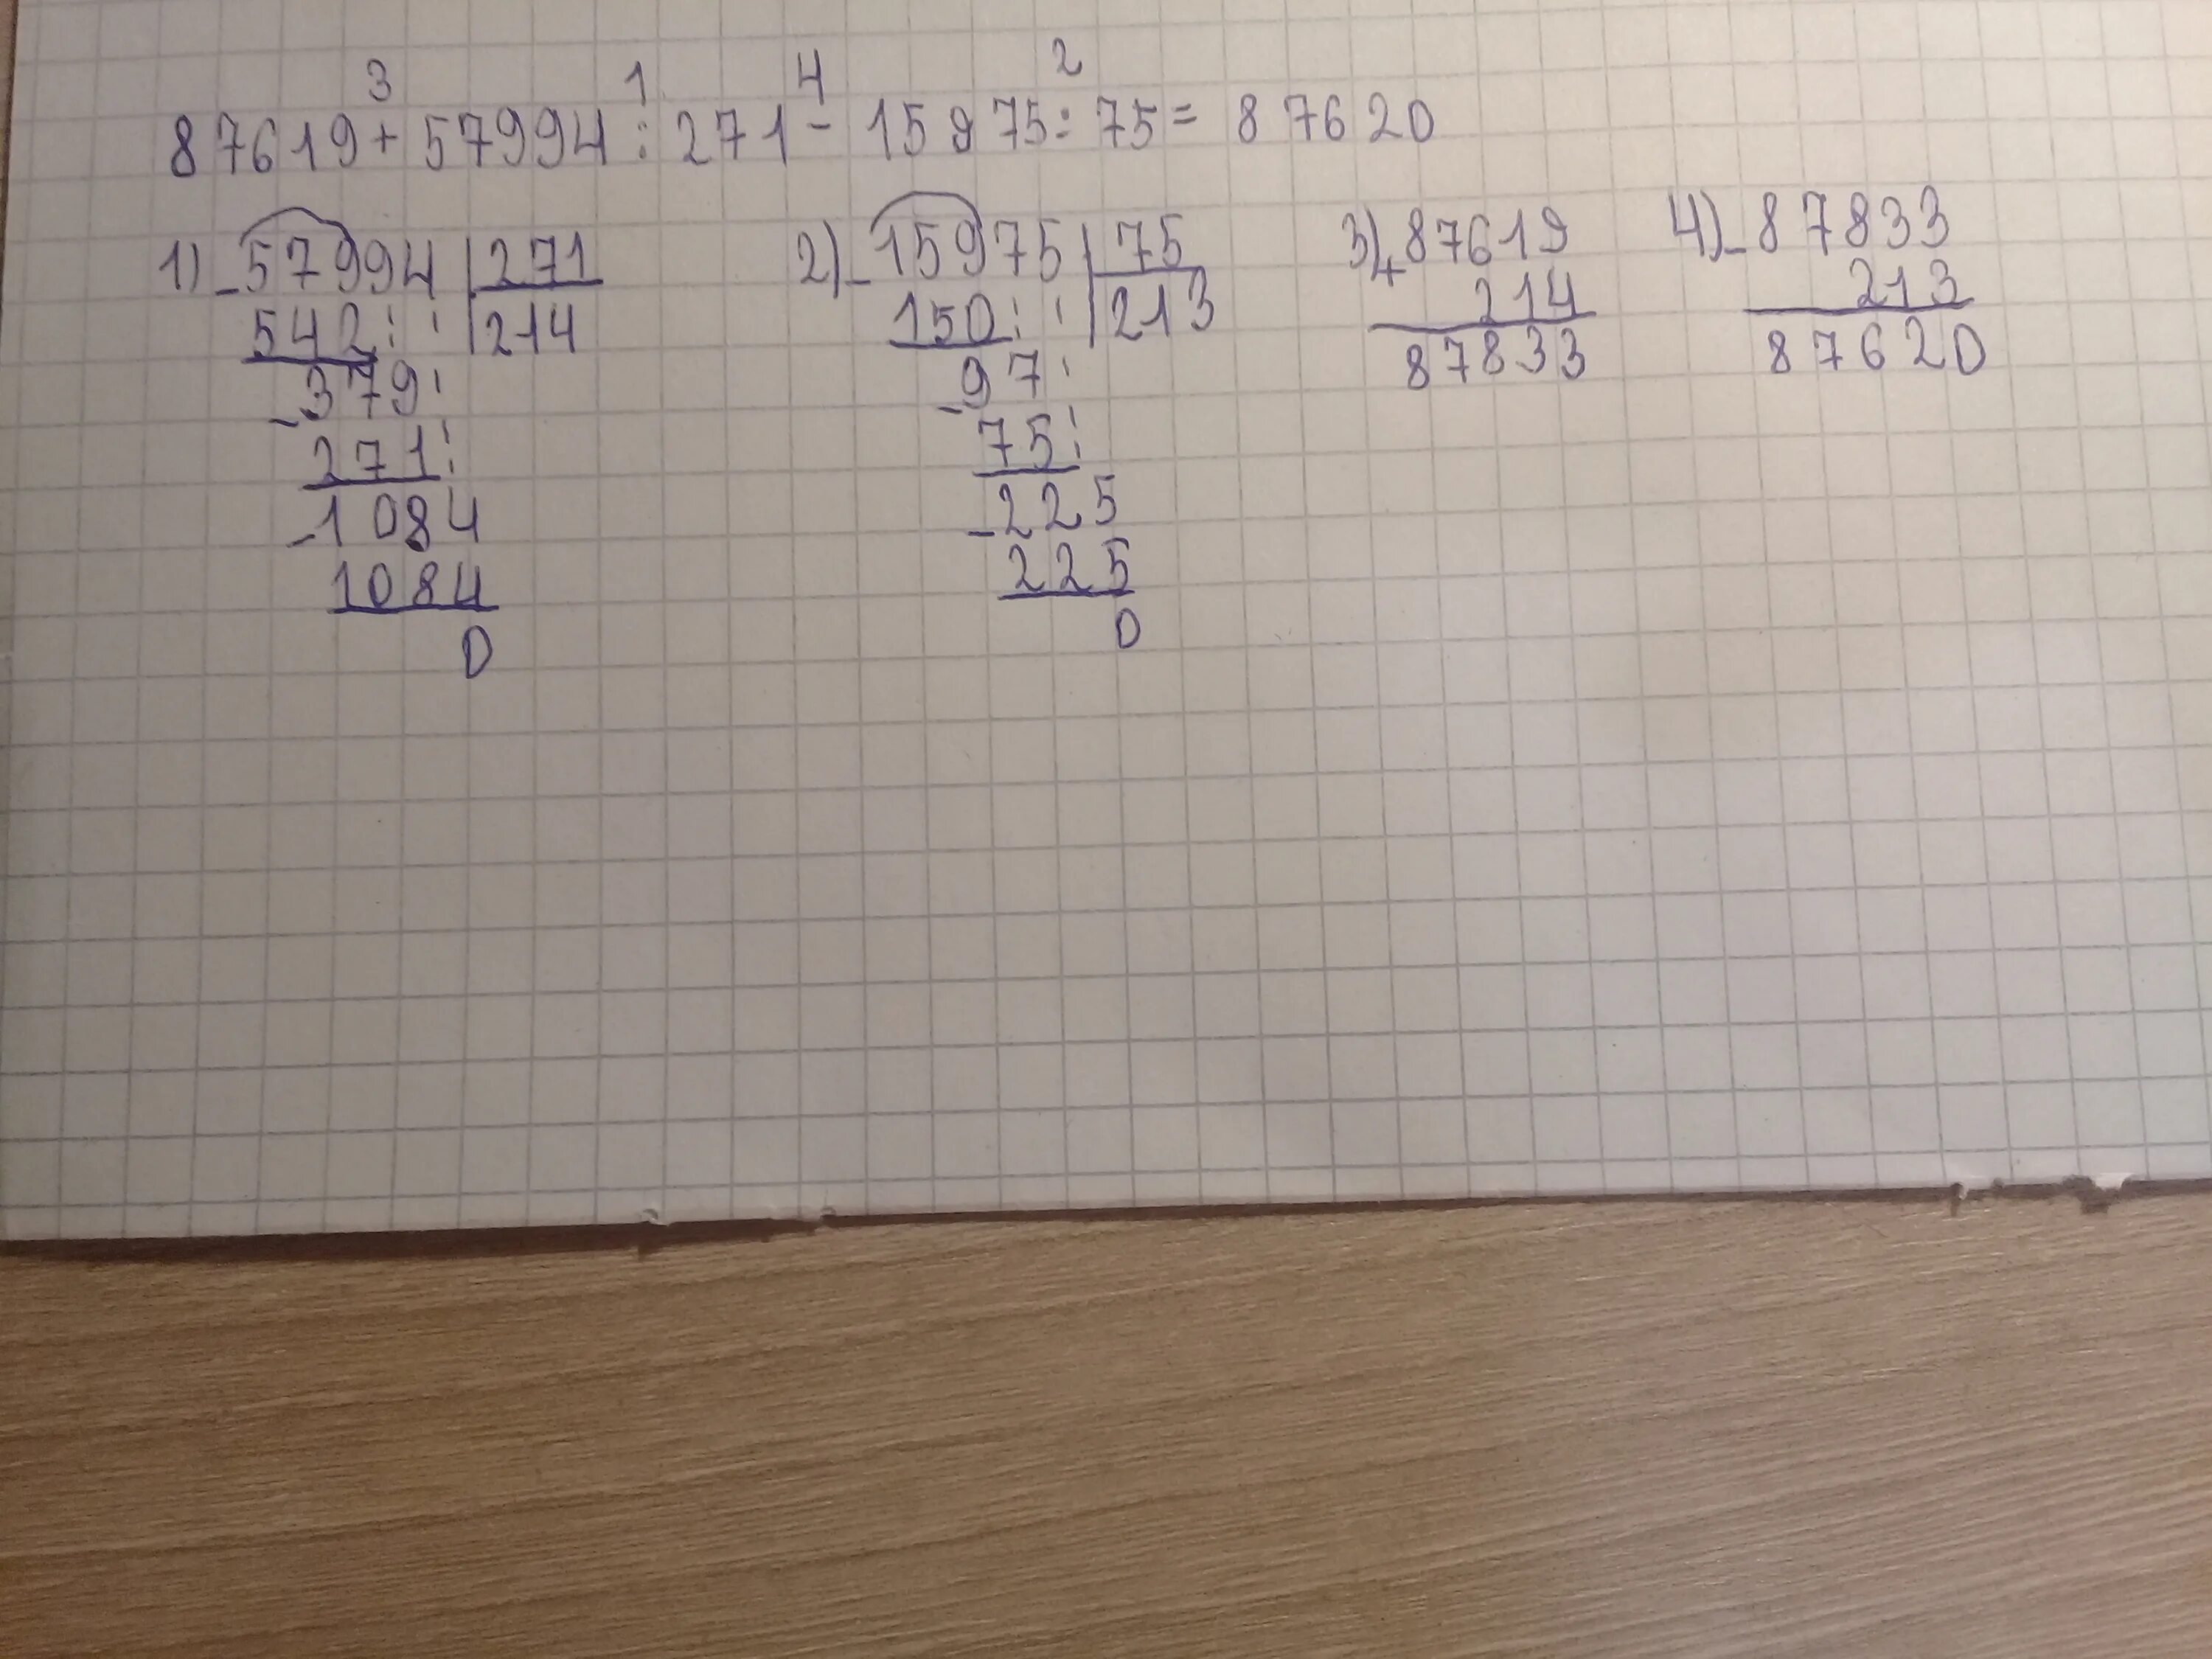 3 1 4 2
87619 + 57994 : 271 - 15975 : 75 = 87620
1) - 57994 | 271
542 | 214
- 379
271
- 1084
1084
0
2) - 15975 | 75
150 | 213
- 97
75
- 225
225
0
3) + 87619
214
87833
4) - 87833
213
87620